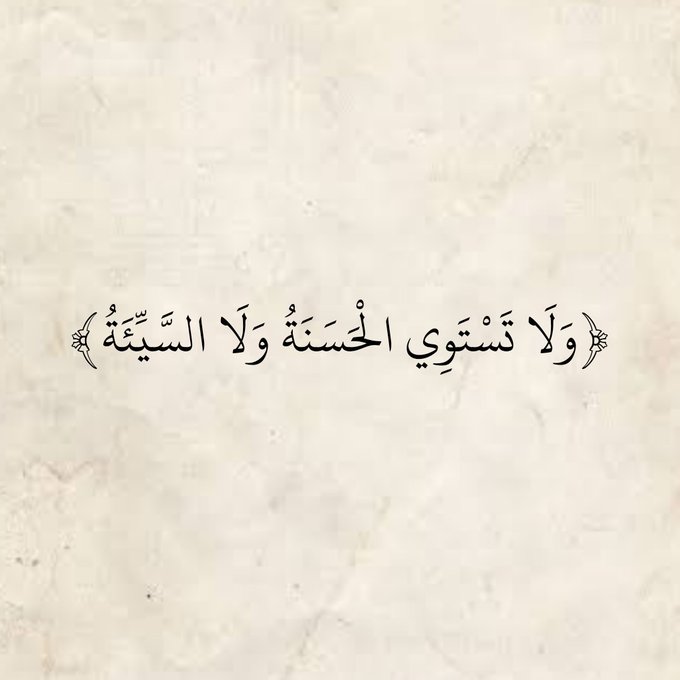 ﴿وَلَا تَسْتَوِي الْحَسَنَةُ وَلَا السَّيِّئَةُ﴾